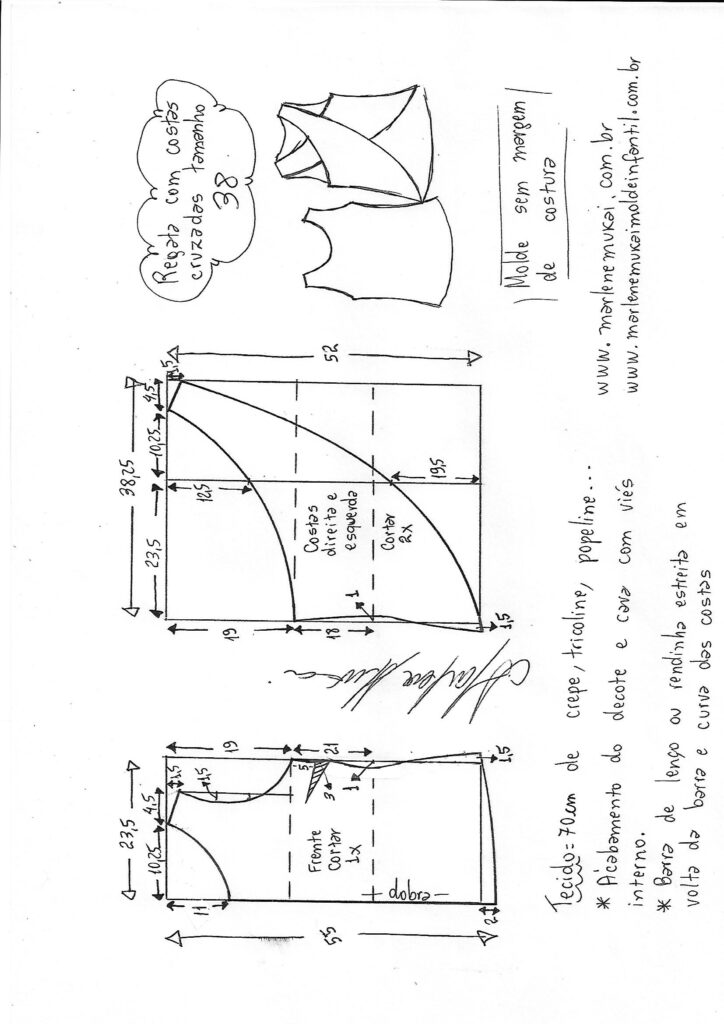 Regata com costas
cruzadas tamanho
38
Molde sem margem
de costura
www.marlenemukai.com.br
www.marlenemukaimoldeinfantil.com.br
23,5
10,25
4,5
1,5
1,5
19
21
11
5
3
1
Frente
Cortar
1x
dobra
55
2
1,5
38,25
23,5
10,25
4,5
1,5
52
12,5
19,5
19
18
1
Costas
direita e
esquerda
Cortar
2x
1,5
Tecido=70cm de crepe, tricoline, popeline...
* Acabamento do decote e cava com viés
interno.
* Barra de lenço ou rendinha estreita em
volta da barra e curva das costas